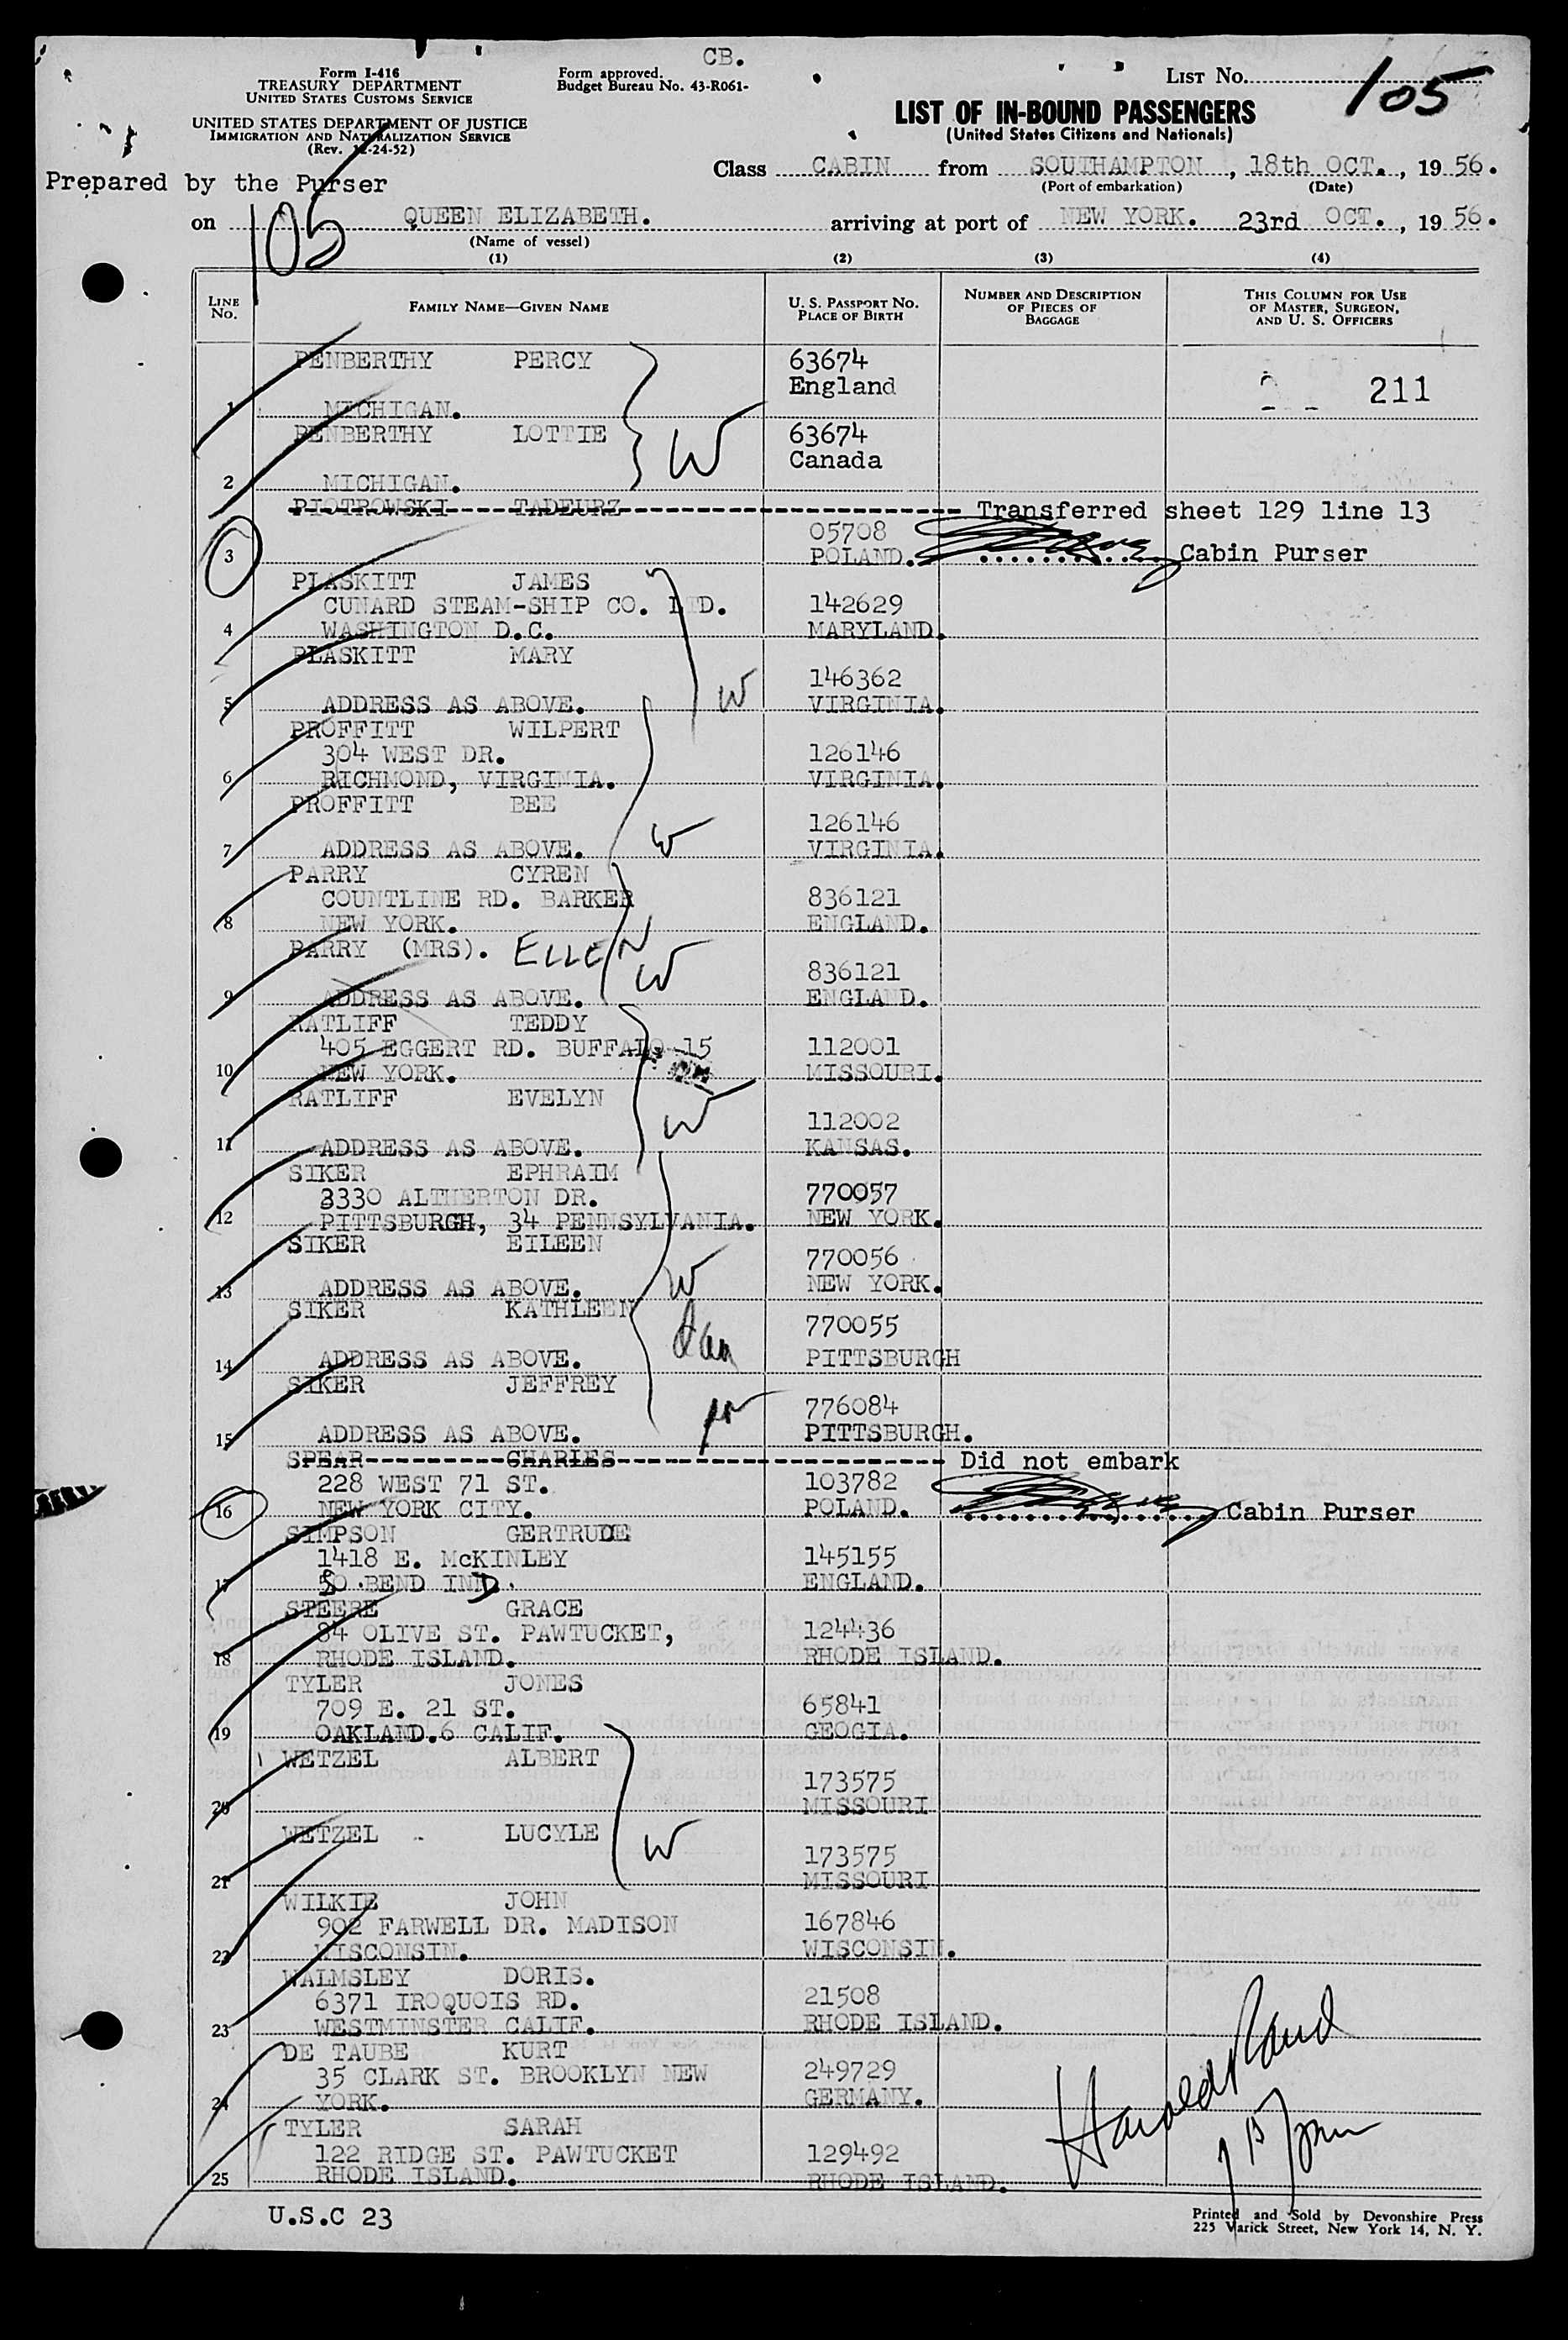 CB.
Form I-416
TREASURY DEPARTMENT
UNITED STATES CUSTOMS SERVICE
UNITED STATES DEPARTMENT OF JUSTICE
IMMIGRATION AND NATURALIZATION SERVICE
(Rev. 12-24-52)
Form approved.
Budget Bureau No. 43-R061-
LIST NO. 105
LIST OF IN-BOUND PASSENGERS
(United States Citizens and Nationals)
Prepared by the Purser
Class CABIN from SOUTHAMPTON, 18th OCT., 1956.
(Port of embarkation) (Date)
105
on QUEEN ELIZABETH. arriving at port of NEW YORK. 23rd OCT., 1956.
(Name of vessel)
(1) (2) (3) (4)
LINE NO.
FAMILY NAME—GIVEN NAME
U. S. PASSPORT NO. PLACE OF BIRTH
NUMBER AND DESCRIPTION OF PIECES OF BAGGAGE
THIS COLUMN FOR USE OF MASTER, SURGEON, AND U. S. OFFICERS
PENBERTHY PERCY 63674
England 211
1 MICHIGAN.
PENBERTHY LOTTIE 63674
W Canada
2 MICHIGAN.
PIOTROWSKI TADEURZ Transferred sheet 129 line 13
05708
3 POLAND. Cabin Purser
PLASKITT JAMES
CUNARD STEAM-SHIP CO. LTD. 142629
4 WASHINGTON D.C. MARYLAND.
PLASKITT MARY
W 146362
5 ADDRESS AS ABOVE. VIRGINIA.
PROFFITT WILPERT
304 WEST DR. 126146
6 RICHMOND, VIRGINIA. VIRGINIA.
PROFFITT BEE
W 126146
7 ADDRESS AS ABOVE. VIRGINIA.
PARRY CYREN
COUNTLINE RD. BARKER 836121
8 NEW YORK. ENGLAND.
PARRY (MRS). ELLEN
W 836121
9 ADDRESS AS ABOVE. ENGLAND.
RATLIFF TEDDY
405 EGGERT RD. BUFFALO 15 112001
10 NEW YORK. MISSOURI.
RATLIFF EVELYN
W 112002
11 ADDRESS AS ABOVE. KANSAS.
SIKER EPHRAIM
3330 ALTHERTON DR. 770057
12 PITTSBURGH, 34 PENNSYLVANIA. NEW YORK.
SIKER EILEEN
W 770056
13 ADDRESS AS ABOVE. NEW YORK.
SIKER KATHLEEN
770055
14 ADDRESS AS ABOVE. PITTSBURGH
SIKER JEFFREY
776084
15 ADDRESS AS ABOVE. PITTSBURGH.
SPEAR CHARLES Did not embark
228 WEST 71 ST. 103782
16 NEW YORK CITY. POLAND. Cabin Purser
SIMPSON GERTRUDE
1418 E. McKINLEY 145155
17 SO.BEND IND. ENGLAND.
STEERE GRACE
84 OLIVE ST. PAWTUCKET, 124436
18 RHODE ISLAND. RHODE ISLAND.
TYLER JONES
709 E. 21 ST. 65841
19 OAKLAND.6 CALIF. GEOGIA.
WETZEL ALBERT
173575
20 MISSOURI
WETZEL LUCYLE
W 173575
21 MISSOURI
WILKIE JOHN
902 FARWELL DR. MADISON 167846
22 WISCONSIN. WISCONSIN.
WALMSLEY DORIS.
6371 IROQUOIS RD. 21508
23 WESTMINSTER CALIF. RHODE ISLAND.
DE TAUBE KURT
35 CLARK ST. BROOKLYN NEW 249729
24 YORK. GERMANY.
TYLER SARAH
122 RIDGE ST. PAWTUCKET 129492
25 RHODE ISLAND. RHODE ISLAND.
Harold Rand
U.S.C 23
Printed and Sold by Devonshire Press
225 Varick Street, New York 14, N. Y.